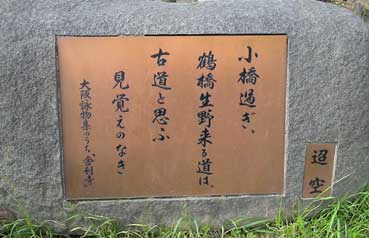 小橋過ぎ、
鶴橋生野来る道は、
古道と思ふ
見覚えのなき
大阪詠物集のうち「舎利寺」
迢空